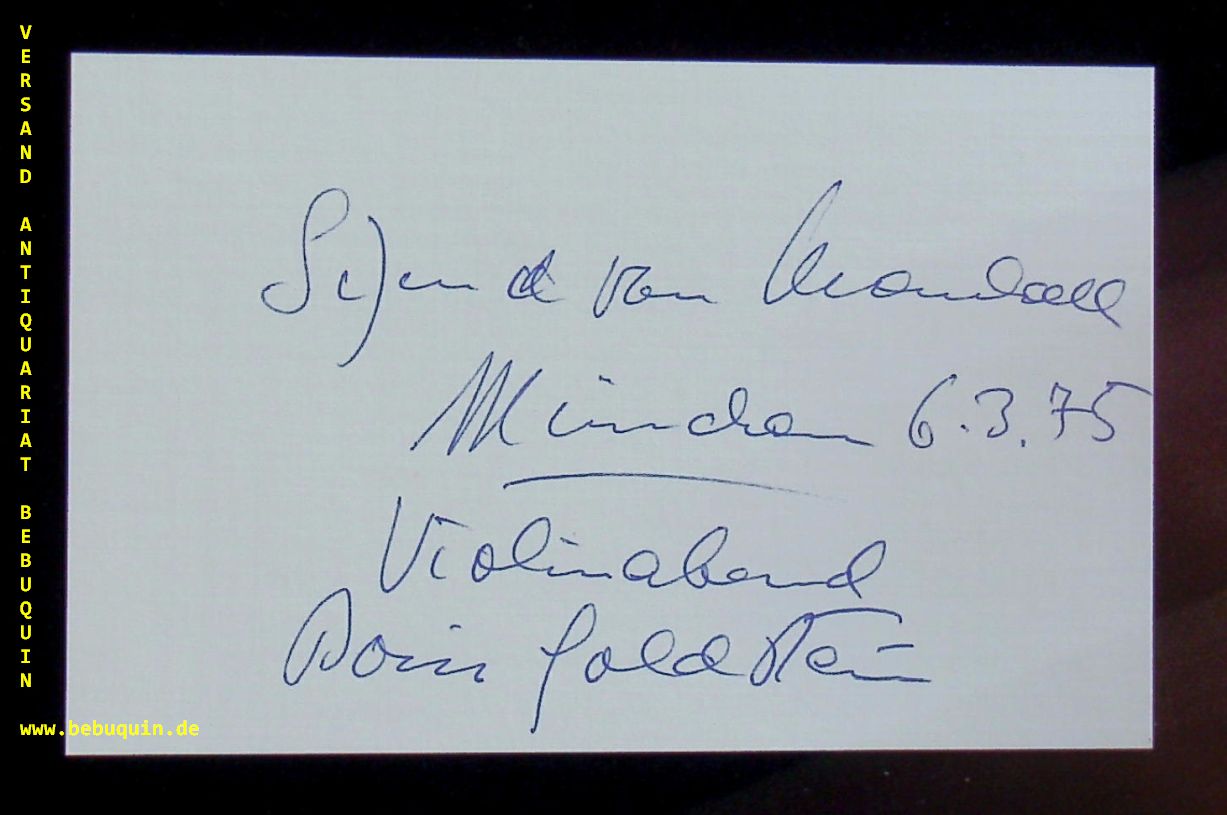 VERSAND ANTIQUARIAT BEBUQUIN
von
München 6.3.75
Violinabend
Boris Goldstein
www.bebuquin.de